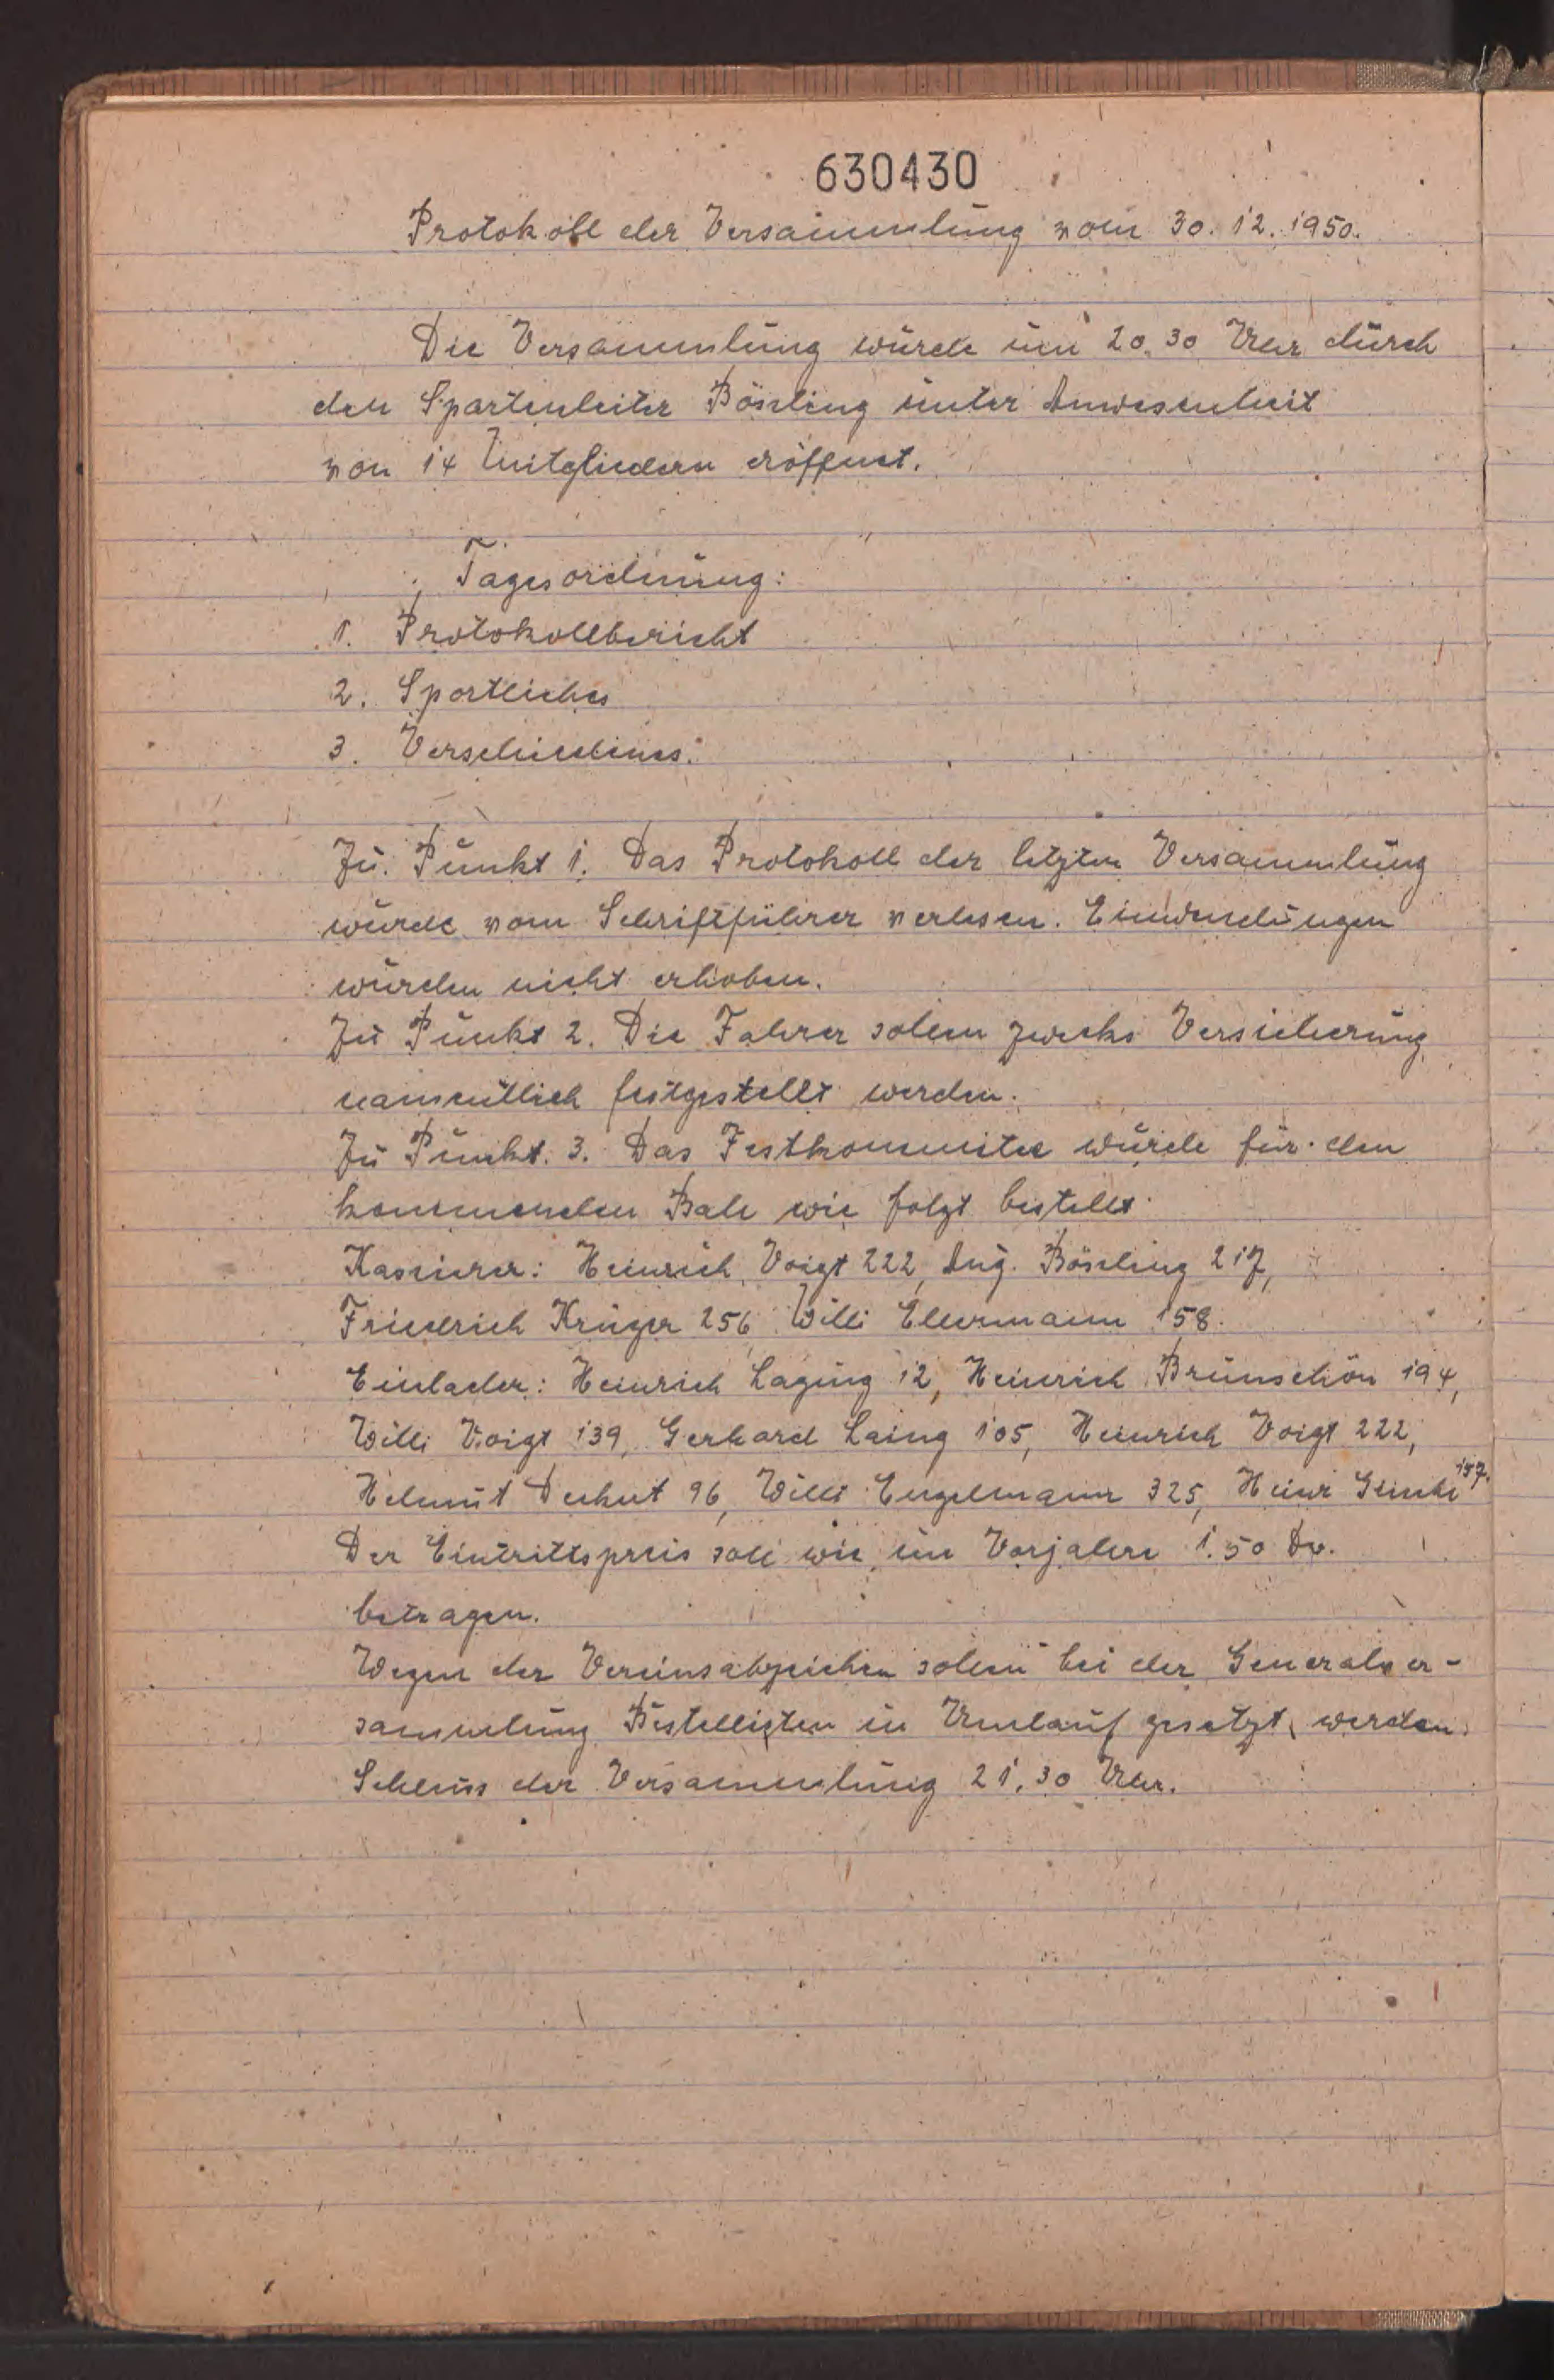 630430
Protokoll der Versammlung vom 30. 12. 1950.
Die Versammlung wurde um 20.30 Uhr durch
den Spartenleiter Bösling unter Anwesenheit
von 14 Mitgliedern eröffnet.
Tagesordnung:
1. Protokollbericht
2. Sportliches
3. Verschiedenes.
Zu Punkt 1. Das Protokoll der letzten Versammlung
wurde vom Schriftführer verlesen. Einwendungen
wurden nicht erhoben.
Zu Punkt 2. Die Fahrer sollen zwecks Versicherung
namentlich festgestellt werden.
Zu Punkt. 3. Das Festkommitee wurde für den
kommenden Ball wie folgt bestellt
Kassierer: Heinrich Voigt 222, Aug. Bösling 217,
Friedrich Krüger 256, Willi Ellermann 158.
Einlader: Heinrich Laging 12, Heinrich Brunschön 194,
Willi Voigt 139, Gerhard Laing 105, Heinrich Voigt 222,
Helmut 96, Willi Engelmann 325, Heinr 157.
Der Eintrittspreis soll wie im Vorjahre 1.50 
betragen.
Wegen der Vereinsabzeichen sollen bei der Generalver-
sammlung Bestellisten in Umlauf gesetzt werden.
Schluss der Versammlung 21.30 Uhr.